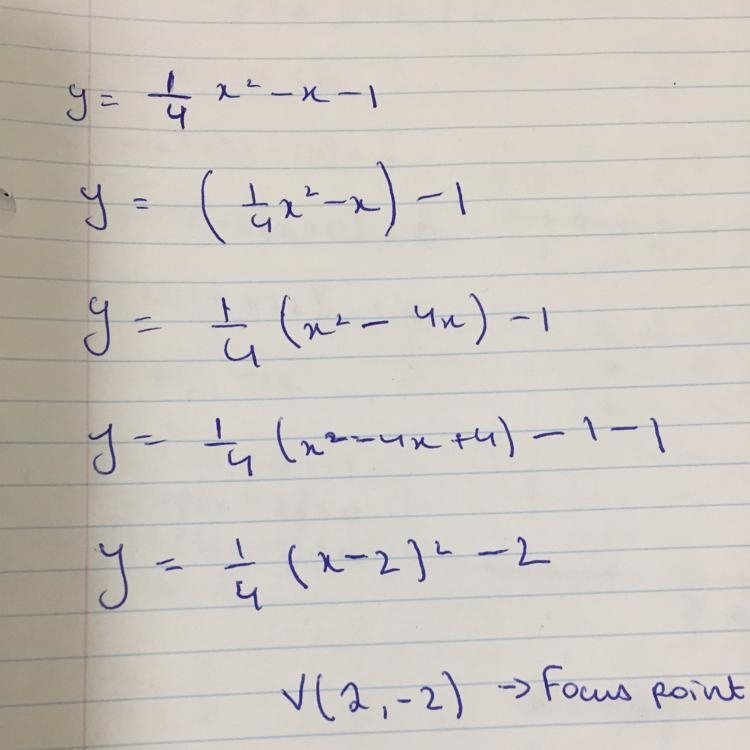 y = 1/4 x² - x - 1
y = (1/4 x² - x) - 1
y = 1/4 (x² - 4x) - 1
y = 1/4 (x² - 4x + 4) - 1 - 1
y = 1/4 (x - 2)² - 2
V(2, -2) → Focus point